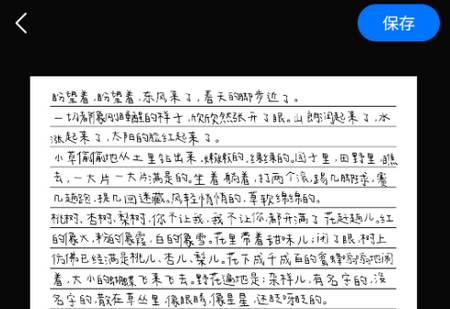 保存
盼望着,盼望着,东风来了,春天的脚步近了。
一切都像刚睡醒的样子,欣欣然张开了眼。山朗润起来了,水
涨起来了,太阳的脸红起来了。
小草偷偷地从土里钻出来,嫩嫩的,绿绿的。园子里,田野里,瞧
去,一大片一大片满是的。坐着,躺着,打两个滚,踢几脚球,赛
几趟跑,捉几回迷藏。风轻悄悄的,草软绵绵的。
桃树、杏树、梨树,你不让我,我不让你,都开满了花赶趟儿。红
的像火,粉的像霞,白的像雪。花里带着甜味儿;闭了眼,树上
仿佛已经满是桃儿、杏儿、梨儿。花下成千成百的蜜蜂嗡嗡地闹
着,大小的蝴蝶飞来飞去。野花遍地是:杂样儿,有名字的,没
名字的,散在草丛里,像眼睛,像星星,还眨呀眨的。